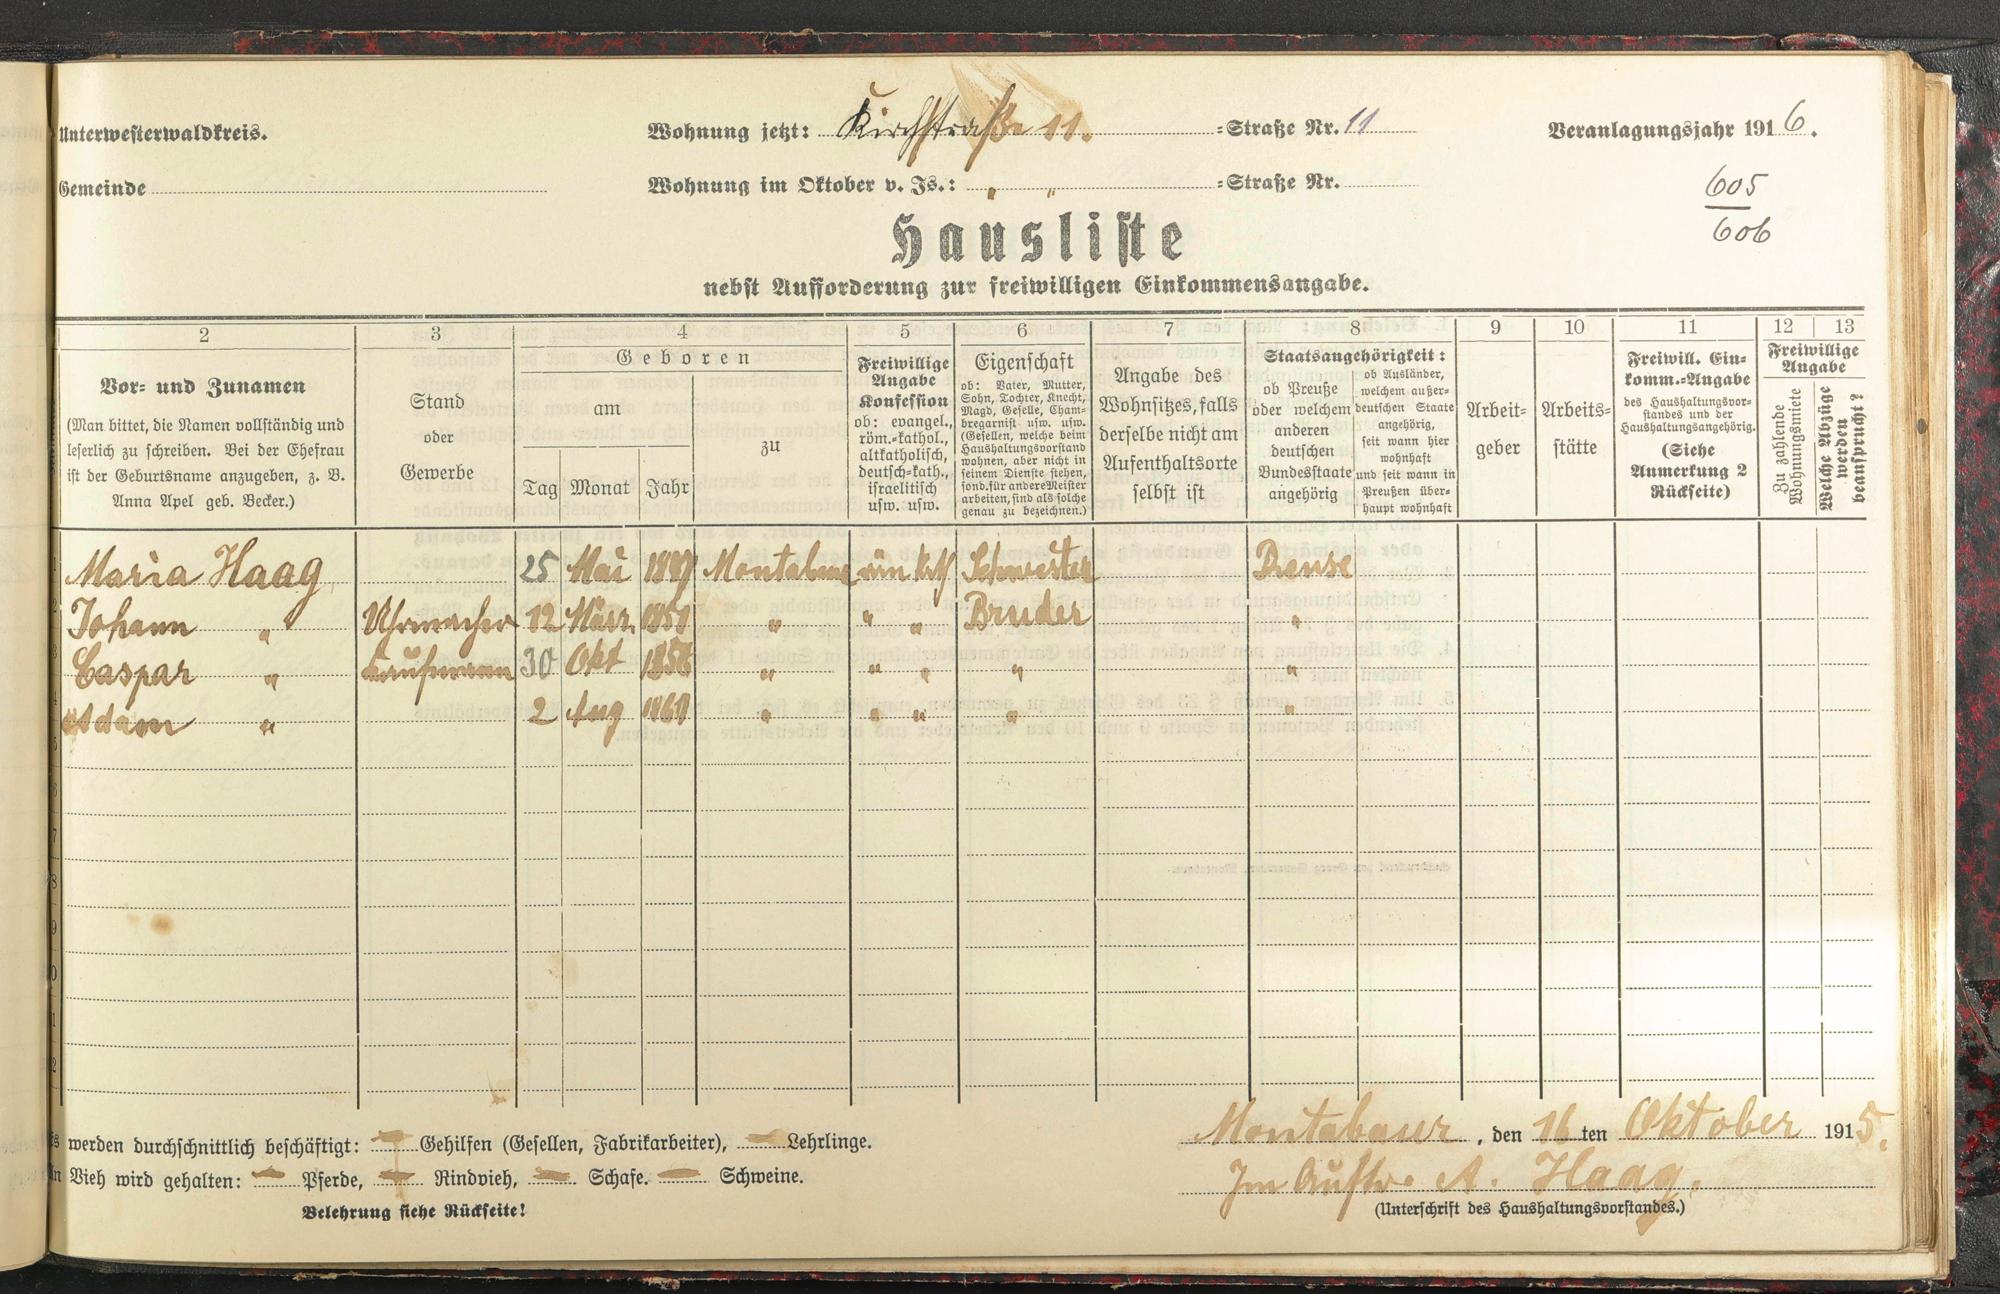 Unterwesterwaldkreis.
Wohnung jetzt: Kirchstraße 11. =Straße Nr. 11
Veranlagungsjahr 1916.
Gemeinde
Wohnung im Oktober v. Js.: " " =Straße Nr.
605
606
Hausliste
nebst Aufforderung zur freiwilligen Einkommensangabe.
2 3 4 5 6 7 8 9 10 11 12 13
Vor= und Zunamen
(Man bittet, die Namen vollständig und
leserlich zu schreiben. Bei der Ehefrau
ist der Geburtsname anzugeben, z. B.
Anna Apel geb. Becker.)
Stand
oder
Gewerbe
Geboren
am
Tag Monat Jahr
zu
Freiwillige
Angabe
Konfession
ob: evangel.,
röm.=kathol.,
altkatholisch,
deutsch=kath.,
israelitisch
usw. usw.
Eigenschaft
ob: Vater, Mutter,
Sohn, Tochter, Knecht,
Magd, Geselle, Cham-
bregarnist usw. usw.
(Gesellen, welche beim
Haushaltungsvorstand
wohnen, aber nicht in
seinem Dienste stehen,
sond. für andere Meister
arbeiten, sind als solche
genau zu bezeichnen.)
Angabe des
Wohnsitzes, falls
derselbe nicht am
Aufenthaltsorte
selbst ist
Staatsangehörigkeit:
ob Preuße
oder welchem
anderen
deutschen
Bundesstaate
angehörig
ob Ausländer,
welchem außer=
deutschen Staate
angehörig,
seit wann hier
wohnhaft
und seit wann in
Preußen über=
haupt wohnhaft
Arbeit=
geber
Arbeits=
stätte
Freiwill. Ein=
komm.=Angabe
des Haushaltungsvor=
standes und der
Haushaltungsangehörig.
(Siehe
Anmerkung 2
Rückseite)
Freiwillige
Angabe
Zu zahlende
Wohnungsmiete
Welche Abzüge
werden
beansprucht?
Maria Haag 25 Mai Montabaur röm kath Schwester Preuse
Johann " Uhrmacher 12 März " " " Bruder "
Caspar " Kaufmann 30 Okt " " " " "
Adam " 2 Aug " " " " "
werden durchschnittlich beschäftigt: — Gehilfen (Gesellen, Fabrikarbeiter), — Lehrlinge.
Vieh wird gehalten: — Pferde, — Rindvieh, — Schafe. — Schweine.
Belehrung siehe Rückseite!
Montabaur, den 16 ten Oktober 1915.
Im Auftr. A. Haag.
(Unterschrift des Haushaltungsvorstandes.)